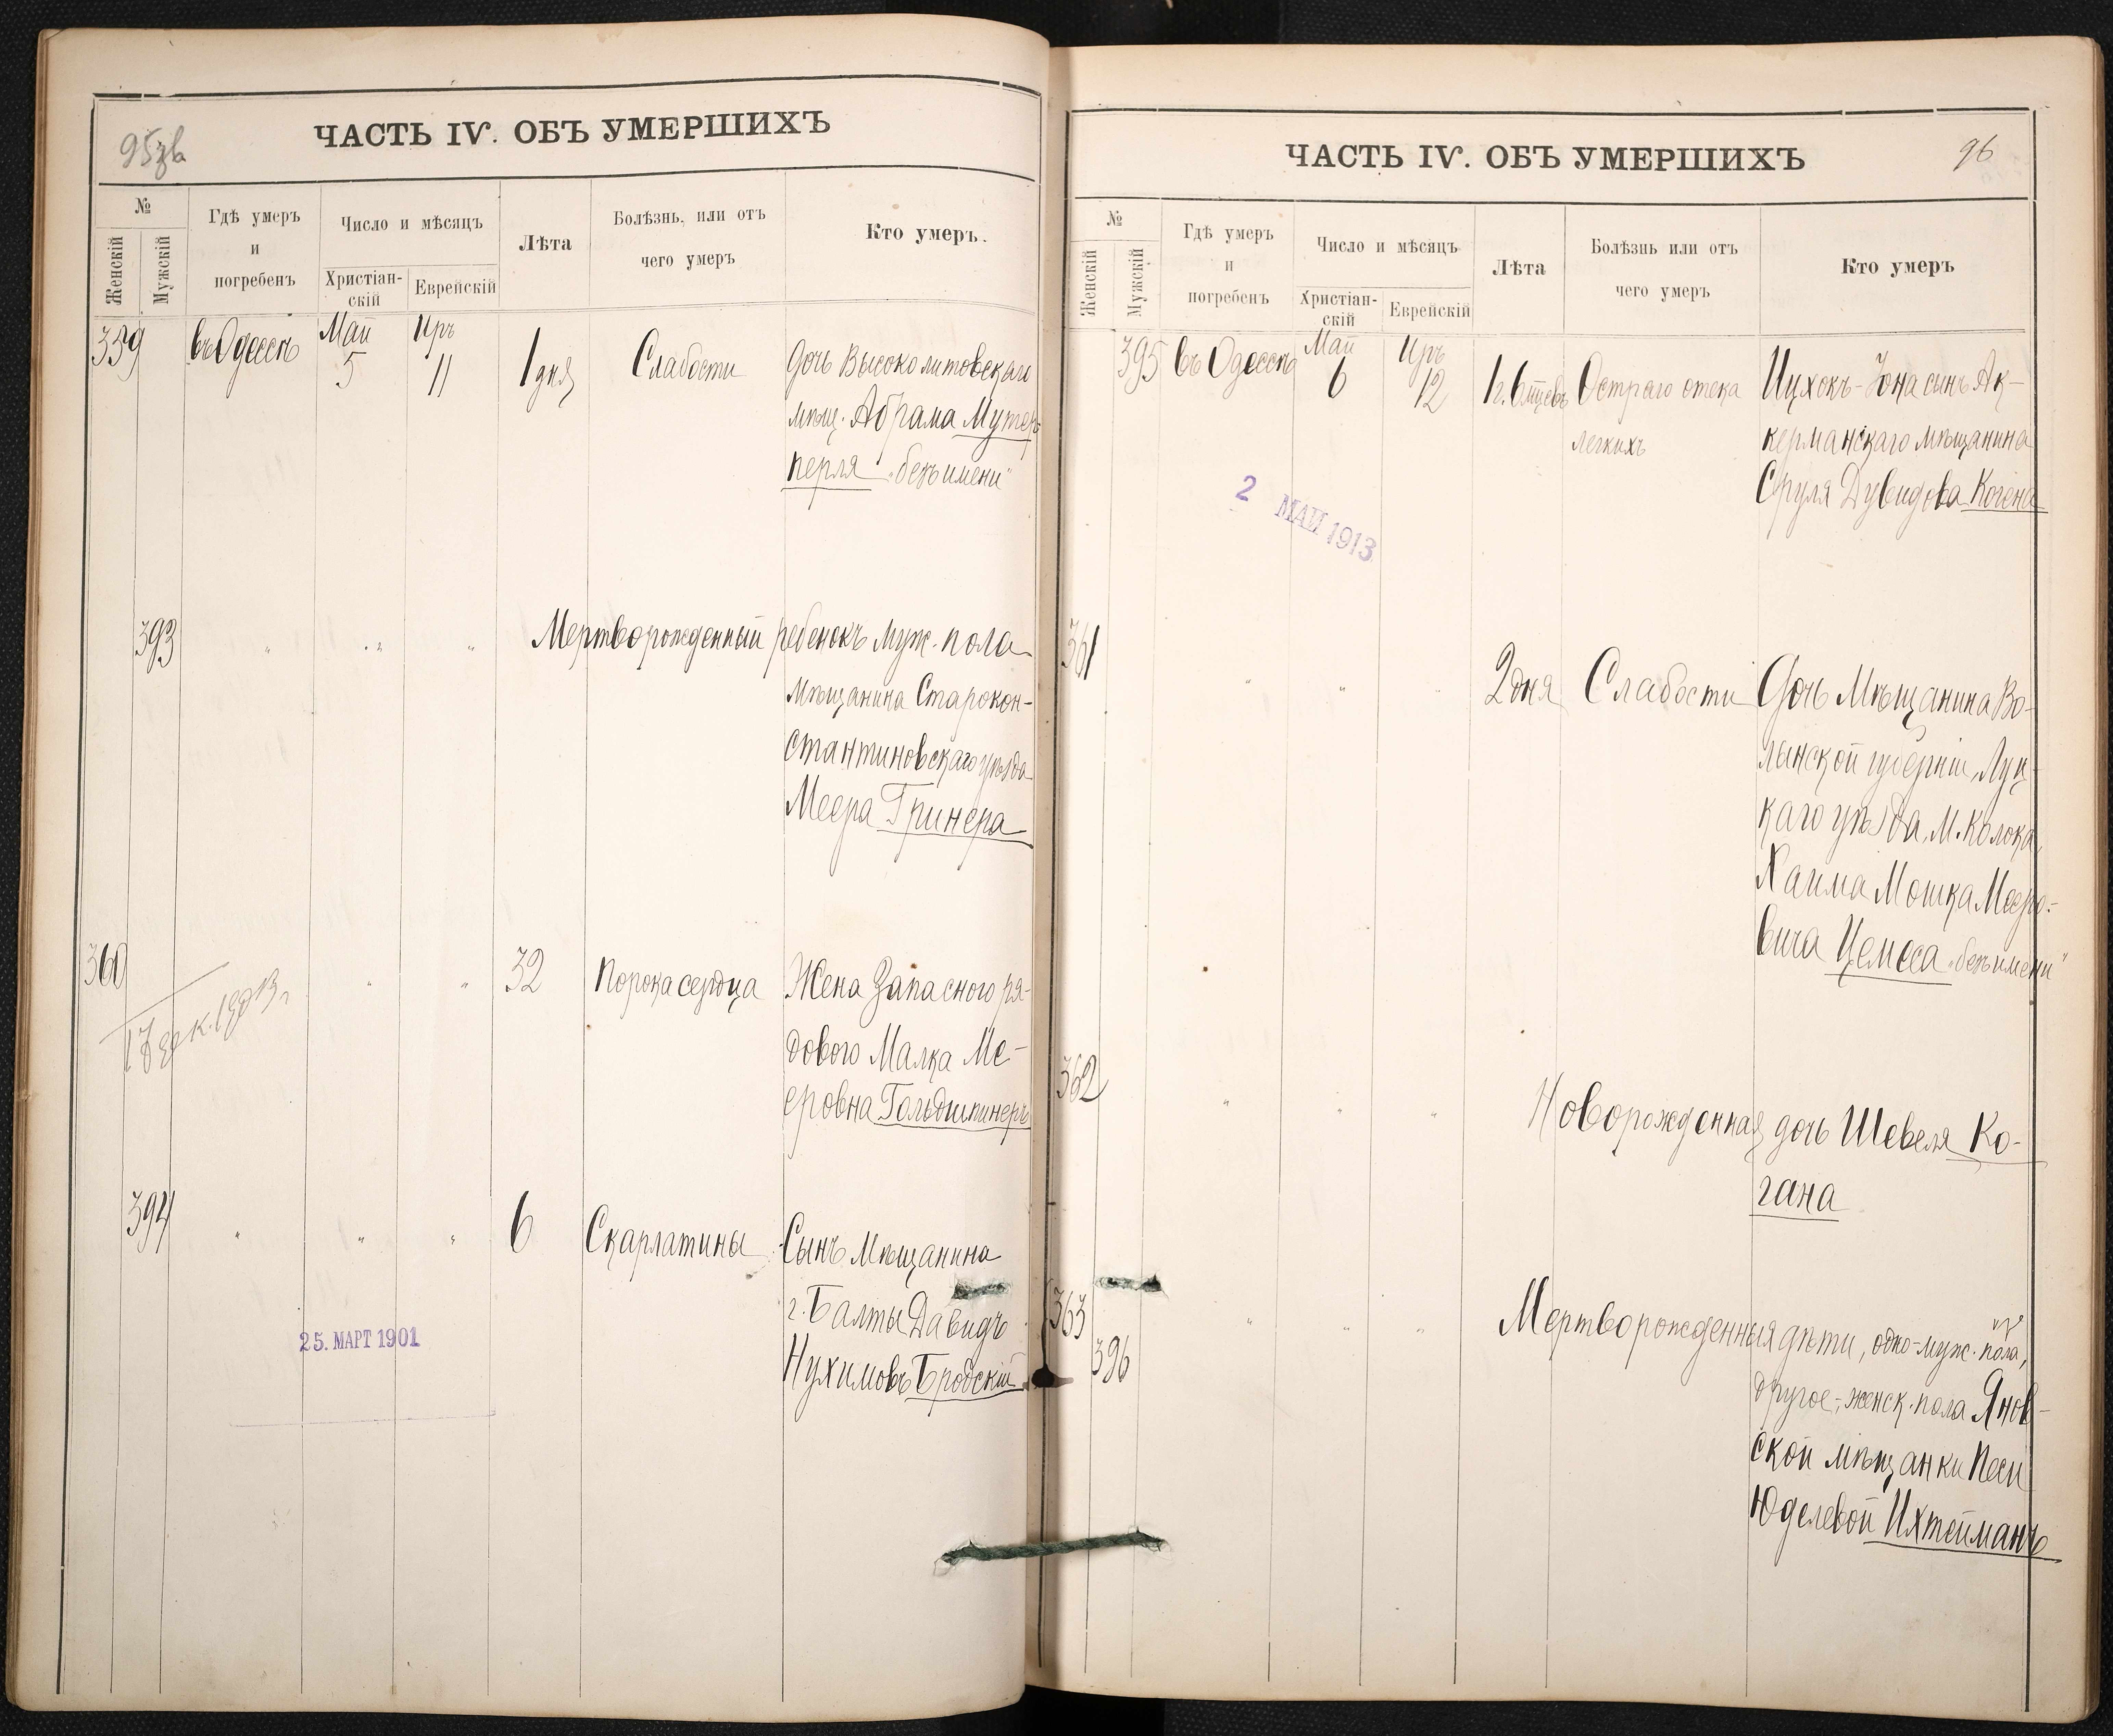 95зв
ЧАСТЬ IV. ОБЪ УМЕРШИХЪ
№
Женскій
Мужскій
Гдѣ умеръ
и
погребенъ
Число и мѣсяцъ
Христіан-
скій
Еврейскій
Лѣта
Болѣзнь, или отъ
чего умеръ
Кто умеръ.
359
въ Одессѣ
Май
5
Иръ
11
1 дня
Слабости
Дочь Высоколитовскаго
мѣщ. Абрама Мутер-
перля „безъ имени"
393
" " "
Мертворожденный ребенокъ муж. пола
мѣщанина Старокон-
стантиновскаго уѣзда
Меера Гринера
360
" "
32
Порока сердца
Жена Запасного ря-
дового Малка Ме-
еровна Гольдшпинеръ
394
" " "
6
Скарлатины
Сынъ Мѣщанина
г. Балты Давидъ
Нухимовъ Бродскій
25. МАРТ 1901
96
ЧАСТЬ IV. ОБЪ УМЕРШИХЪ
№
Женскій
Мужскій
Гдѣ умеръ
и
погребенъ
Число и мѣсяцъ
Христіан-
скій
Еврейскій
Лѣта
Болѣзнь или отъ
чего умеръ
Кто умеръ
395
въ Одессѣ
Май
6
Иръ
12
1 г. 6 мцевъ
Остраго отека
легкихъ
Ицхокъ-Іона сынъ Ак-
керманскаго мѣщанина
Сруля Дувидова Когена
2 МАЙ 1913
361
" " "
2 дня
Слабости
Дочь Мѣщанина Во-
лынской губерніи, Луц-
каго уѣзда, М. Колока,
Хаима Мошка Мееро-
вича Цемсса „безъ имени"
362
" " "
Новорожденная дочь Шевеля Ко-
гана
363
396
" " "
Мертворожденныя дѣти, одно-муж. пола,
другое-, женск. пола Янов-
ской мѣщанки Песи
Юделевой Ихтейманъ